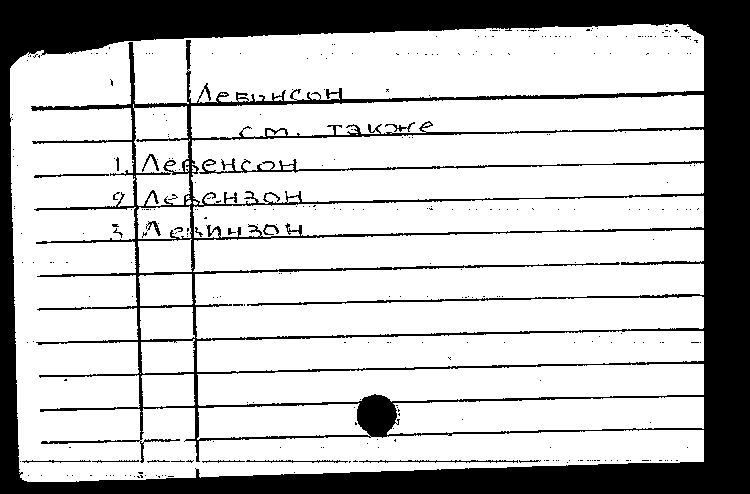 Левинсон
см. также
1. Левенсон
2 Левензон
3. Левинзон